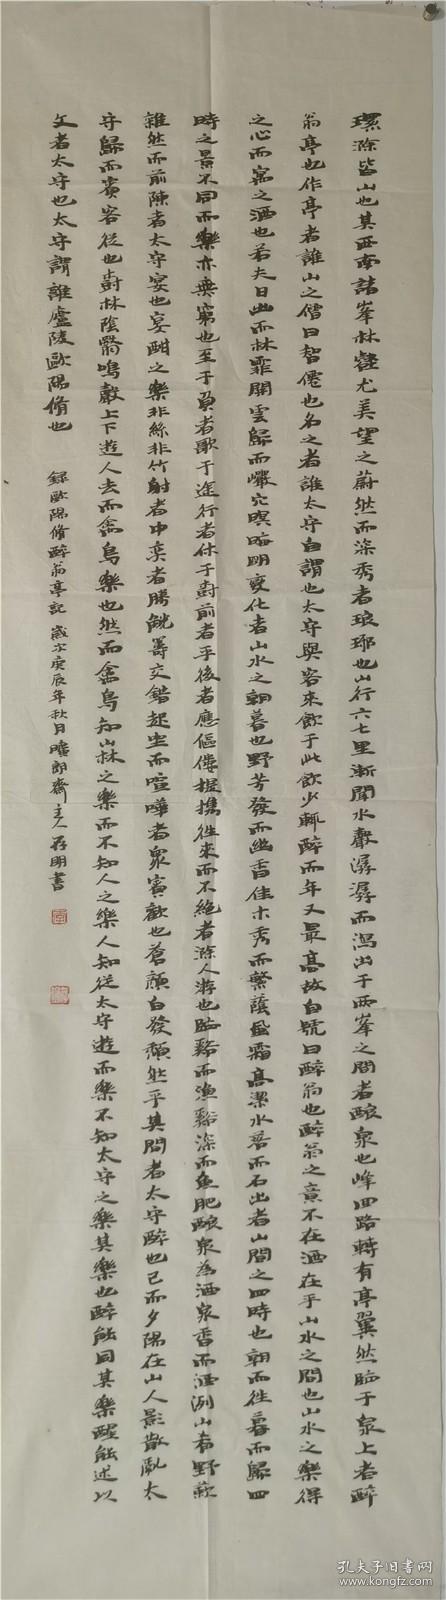 環滁皆山也其西南諸峯林壑尤美望之蔚然而深秀者琅琊也山行六七里漸聞水聲潺潺而瀉出于兩峯之間者釀泉也峰回路轉有亭翼然臨于泉上者醉
翁亭也作亭者誰山之僧曰智僊也名之者誰太守自謂也太守與客來飲于此飲少輒醉而年又最高故自號曰醉翁也醉翁之意不在酒在乎山水之間也山水之樂得
之心而寓之酒也若夫日出而林霏開雲歸而巖穴暝晦明變化者山水之朝暮也野芳發而幽香佳木秀而繁蔭風霜高潔水落而石出者山間之四時也朝而往暮而歸四
時之景不同而樂亦無窮也至于負者歌于途行者休于樹前者乎後者應傴僂提攜往來而不絕者滁人游也臨谿而漁谿深而魚肥釀泉為酒泉香而酒洌山肴野蔌
雜然而前陳者太守宴也宴酣之樂非絲非竹射者中奕者勝觥籌交錯起坐而喧嘩者衆賓歡也蒼顏白發頹然乎其間者太守醉也已而夕陽在山人影散亂太
守歸而賓客從也樹林陰翳鳴聲上下遊人去而禽鳥樂也然而禽鳥知山林之樂而不知人之樂人知從太守遊而樂不知太守之樂其樂也醉能同其樂醒能述以
文者太守也太守謂誰廬陵歐陽脩也 録歐陽脩醉翁亭記 歲次庚辰年秋日 齋主人 明書
孔夫子旧书网
www.kongfz.com